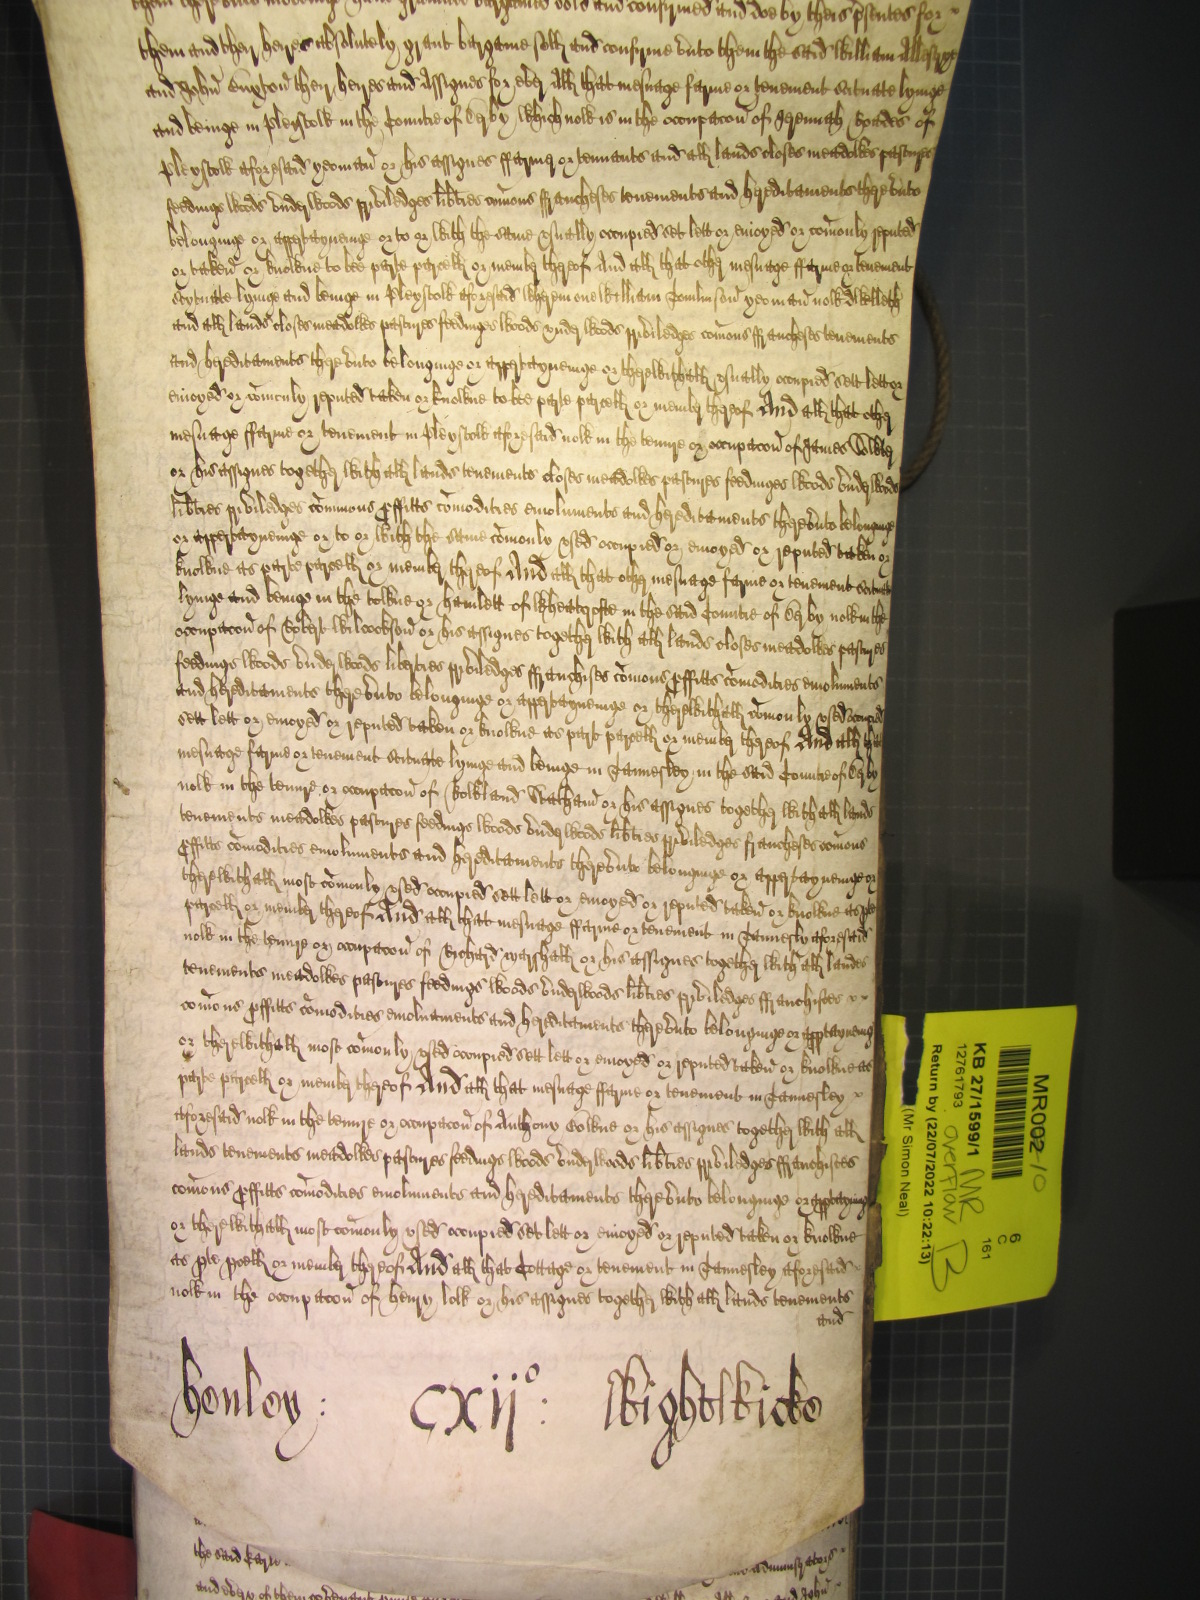 them and their heires absolutely grant bargaine sell and confirme unto them the said William Allestrye
and John their heires and Assignes for ever All that mesuage farme or tenement scituate lyinge
and beinge in Pleystow in the Countie of Derby which now is in the occupacoñ of Jeremiah of
Pleystow aforesaid yeoman or his assignes ffarmers or tennants and all lands closes meadowes pastures
feedings woods underwoods priviledges libties comons ffraucheses tenements and hereditaments thereunto
belonginge or appertayneinge or to or with the same usually occupied set lett or enioyed or comonly reputed
or taken or knowne to bee parte parcell or member thereof And all that other mesuage ffarme or tenement
Scytuate lyinge and beinge in Pleystow aforesaid wherein one William Tomlinson yeoman now dwelleth
and all lands closes meadowes pastures feedinges woods underwoods priviledges comons ffraucheses tenements
and hereditaments thereunto belonginge or appertayneinge or therewithall usually occupied sett lett or
enioyed or comonly reputed taken or knowne to bee parte parcell or member thereof And all that other
mesuage ffarme or tenement in Pleystow aforesaid now in the tenure or occupacoñ of James
or his assignes together with all lands tenements closes meadowes pastures feedinges woods underwoods
libties priviledges commons pffitts comodities emoluments and hereditaments thereunto belonginge
or appertayneinge or to or with the same comonly used occupied or enioyed or reputed taken or
knowne as parte parcell or member thereof And all that other mesuage farme or tenement scituate
lyinge and beinge in the towne or hamlett of Wheatcrofte in the said Countie of Derby now in the
occupacoñ of Robert Wilcockson or his assignes together with all lands closes meadowes pastures
feedings woods underwoods liberties priviledges ffranchises comons pffitts comodities emoluments
and hereditaments thereunto belonginge or appertayneinge or therewithall comonly used occupied
sett lett or enioyed or reputed taken or knowne as part parcell or member thereof And all that
mesuage farme or tenement scituate lyinge and beinge in Tannesley in the said Countie of Derby
now in the tenure or occupacoñ of Rowland Statham or his assignes together with all lands
tenements meadowes pastures feedings woods underwoods libties priviledges frauncheses comons
pffitts comodities emoluments and hereditaments thereunto belonginge or appertayneinge or
therewithall most comonly used occupied sett lett or enioyed or reputed taken or knowne as pte
parcell or member thereof And all that mesuage ffarme or tenement in Tannesley aforesaid
now in the tenure or occupacoñ of Richard Marshall or his assignes together with all landes
tenements meadowes pastures feedings woods underwoods libties priviledges ffranchises
comons pffitts comodities emoluments and hereditaments thereunto belonginge or apptayneing
or therewithall most comonly used occupied sett lett or enioyed or reputed taken or knowne as
parte parcell or member thereof And all that mesuage ffarme or tenement in Tannesley
aforesaid now in the tenure or occupacoñ of Anthony or his assignes together with all
lands tenements meadowes pastures feedings woods underwoods libties priviledges ffranchises
comons pffitts comodities emoluments and hereditaments thereunto belonginge or apptayning
or therewithall most comonly used occupied set lett or enioyed or reputed taken or knowne
as pte pcell or member thereof And all that Cottage or tenement in Tannesley aforesaid
now in the occupacoñ of Henry or his assignes together with all lands tenements
and
Henley : cxijo : Wightwicke
the said
and of them
and John
MR002-10
KB 27/1599/1 MR
12761793 overflow
Return by (22/07/2022 10:22:13)
(Mr Simon Neal)
6
C
161
B